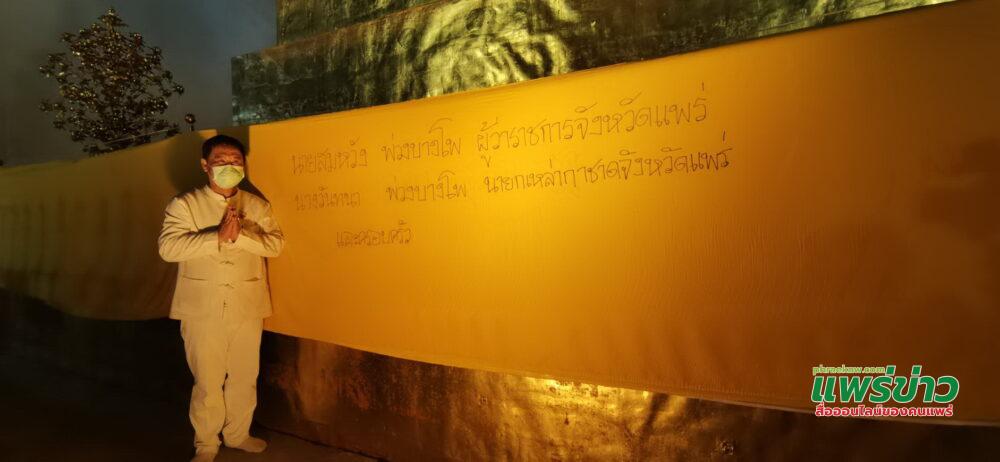 นายสมหวัง พ่วงบางโพ ผู้ว่าราชการจังหวัดแพร่
นางวันทนา พ่วงบางโพ นายกเหล่ากาชาดจังหวัดแพร่
และครอบครัว
phraekaw.com
แพร่ข่าว
สื่อออนไลน์ของคนแพร่